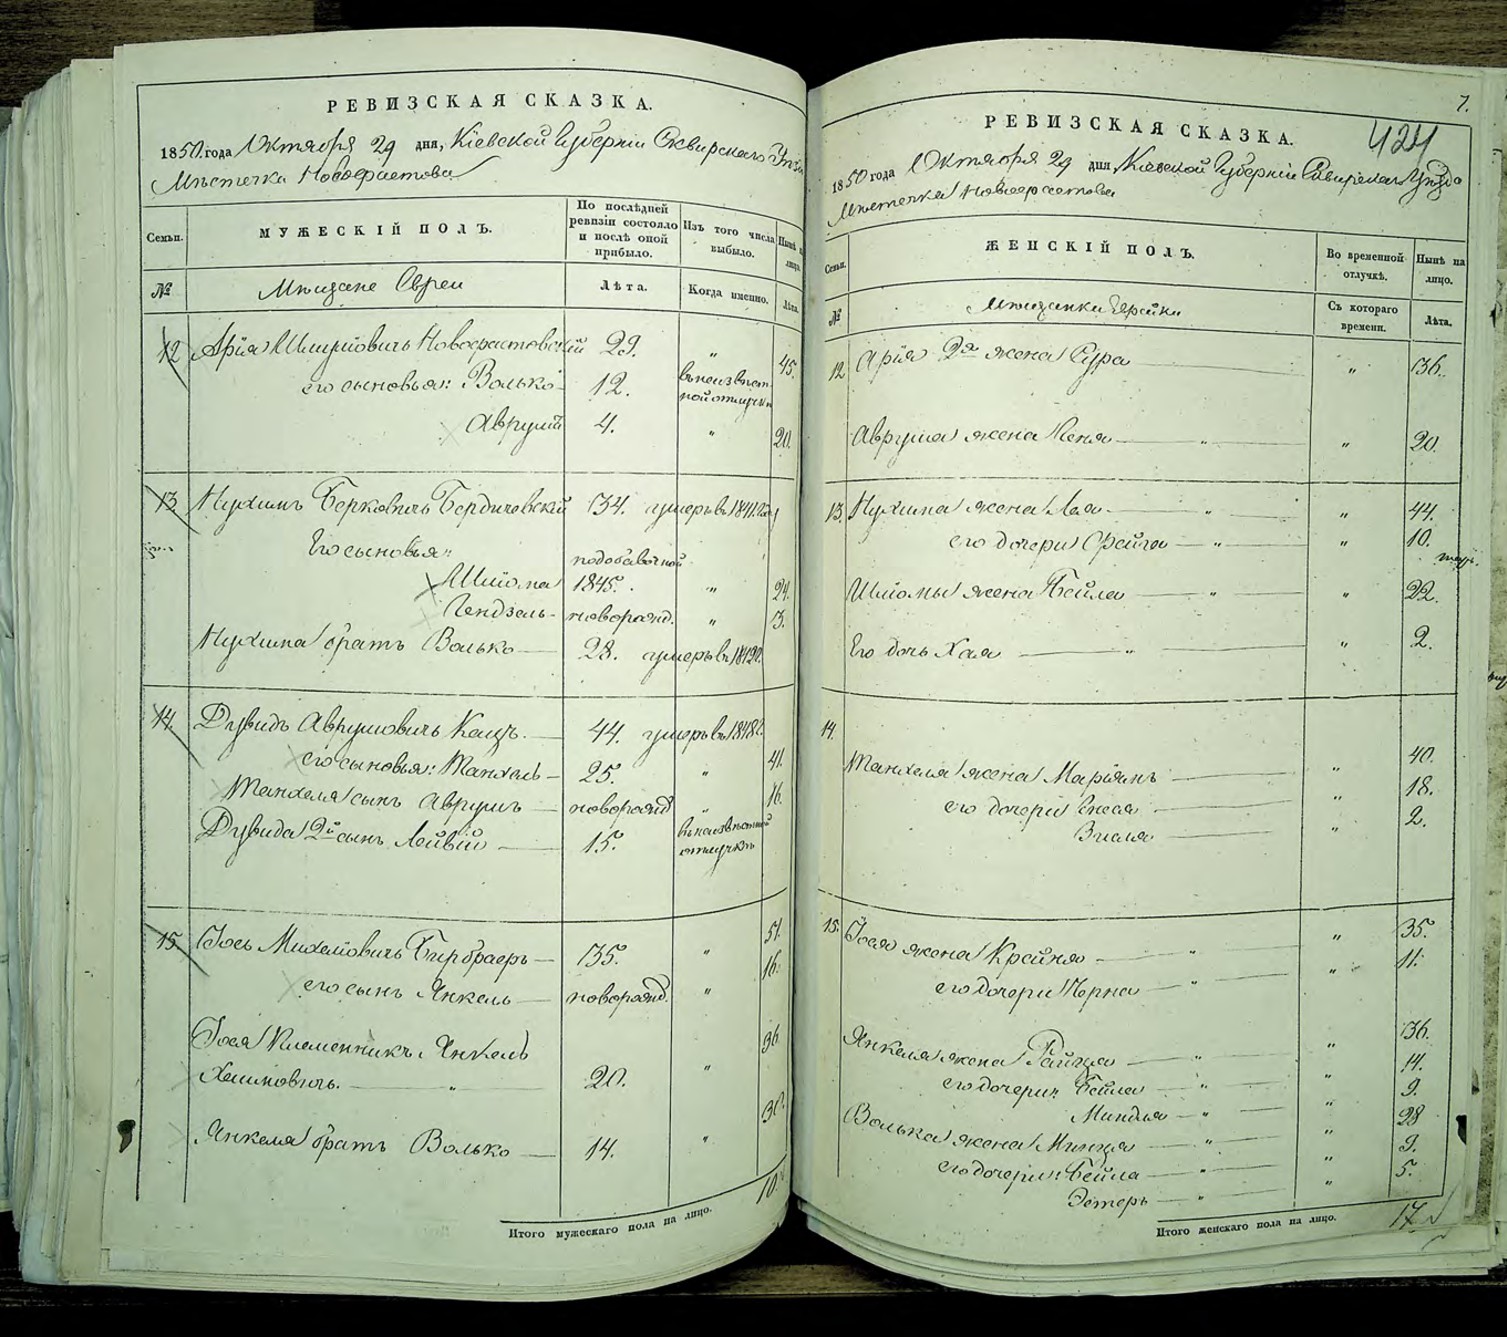 РЕВИЗСКАЯ СКАЗКА.
1850 года Октября 29 дня, Кіевской Губерніи Сквирскаго
Мѣстечка Новофастова
Семьи. МУЖЕСКІЙ ПОЛЪ. По послѣдней ревизіи состояло и послѣ оной прибыло. Изъ того числа выбыло. Нынѣ на лицо.
№ Мѣщане Евреи Лѣта. Когда именно. Лѣта.
12 Арія Новофастовскій 29. „ 45.
его сыновья: Волько 12. въ неизвѣстной отлучкѣ
Аврумъ 4. „ 20.
13 Нухимъ Берковичъ Бердичевскій 34. умеръ въ 1841 году
Его сыновья:
по добавочной
Шліома 1845. „ 24.
Гендзель новорожд. „ 13.
Нухима братъ Волько 28. умеръ въ
14. Дувидъ Аврумовичъ Кацъ. 44. умеръ въ 1848 г.
его сыновья: Танхель 25. „ 41.
Танхеля сынъ Аврумъ новорожд „ 16.
Дувида 2й сынъ Лейвій 15. въ неизвѣстной отлучкѣ
15 Іось Бирбраеръ 35. „ 51.
его сынъ Янкель новорожд. „ 16.
Іося племенникъ Янкель
Хаимовичъ. „ 20. „ 36.
Янкеля братъ Волько 14. „ 30.
10.
Итого мужескаго пола на лицо.
7.
424
РЕВИЗСКАЯ СКАЗКА.
1850 года Октября 29 дня, Кіевской Губерніи Сквирскаго Уѣзда
Мѣстечка Новофастова
Семьи. ЖЕНСКІЙ ПОЛЪ. Во временной отлучкѣ. Нынѣ на лицо.
№ Мѣщанки Еврейки Съ котораго времени. Лѣта.
12 Арія 2я жена Сура „ 36.
Аврума жена Геня „ „ 20.
13. Нухима жена Лея „ „ 44.
его дочери Фрейга „ „ 10.
Шліомы жена Бейла „ „ 22.
Его дочь Хая „ „ 2.
14. Танхеля жена Маріямъ „ 40.
его дочери „ 18.
„ 2.
15. Іося жена Крейня „ „ 35.
его дочери Черна „ „ 11.
Янкеля жена Райца „ „ 36.
его дочери: Бейла „ „ 14.
Миндля „ „ 9.
Волька жена Минца „ „ 28
его дочери: Бейла „ „ 9.
Эстеръ „ „ 5.
17
Итого женскаго пола на лицо.